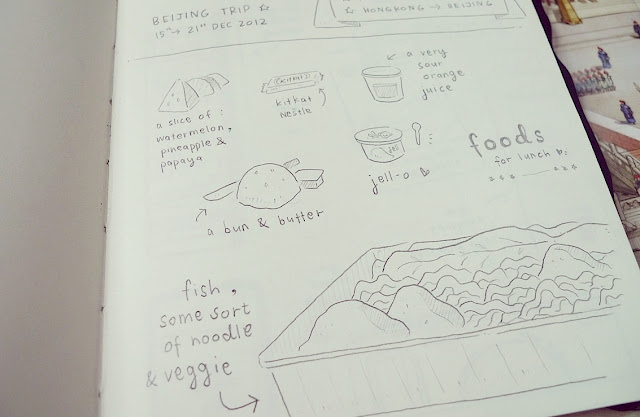 BEIJING TRIP
15th → 21st DEC 2012
HONGKONG → BEIJING
a slice of :
watermelon,
pineapple &
papaya
KITKAT
kitkat
nestle
a very
sour
orange
juice
jell-o
foods
for lunch
a bun & butter
fish,
some sort
of noodle
& veggie